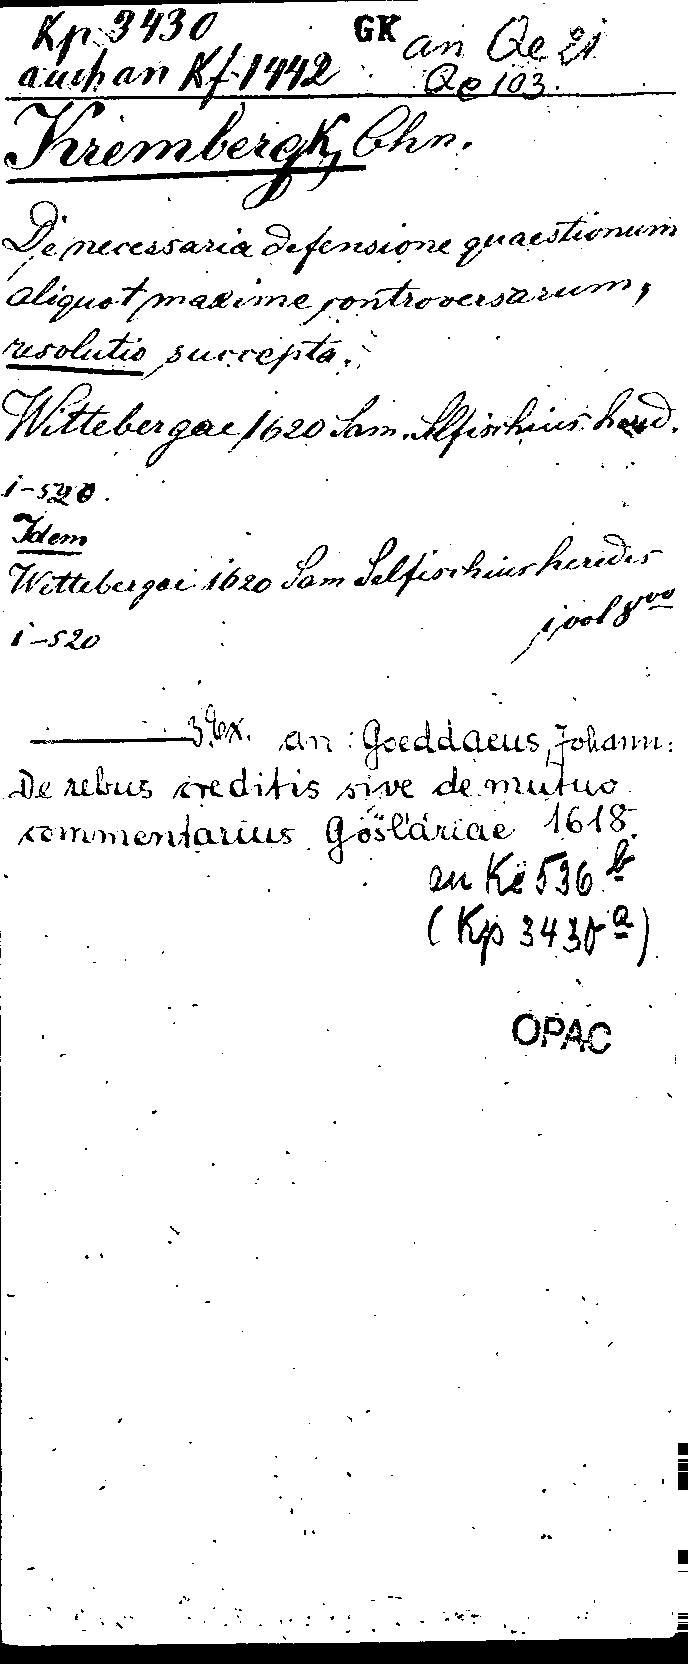 Kp 3430 GK an Qe 21
auch an Kf 1442 Qe 103.
Krembergk, Chn.
De necessaria defensione quaestionum
aliquot maxime controversarum,
resolutio succepta.
Wittebergae 1620 Sam. Selfischius hered.
i-520.
Idem
Wittebergae 1620 Sam Selfischius heredes
i-520 j vol 8vo
3. Ex. an: Goeddaeus, Johann:
De rebus creditis sive de mutuo
commentarius Goslariae 1618.
an Ke 536 b
(Kp 3430 a)
OPAC